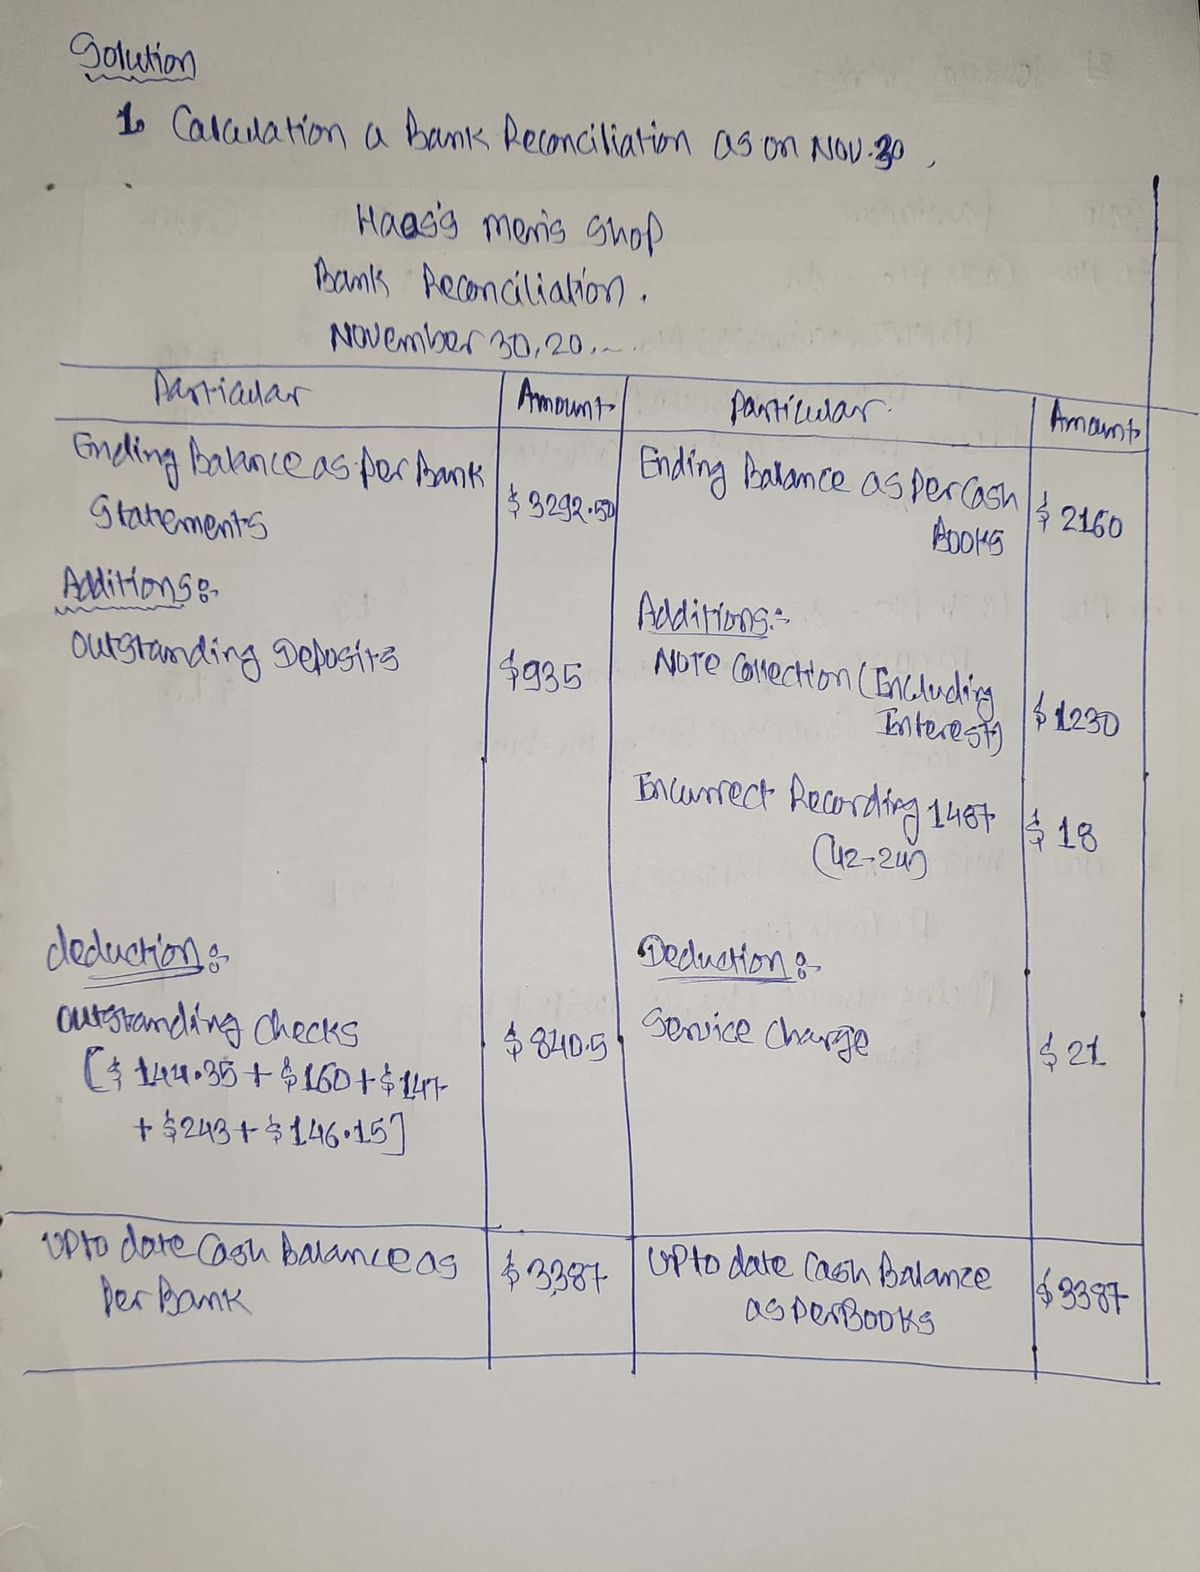 Solution
1. Calculation a Bank Reconciliation as on Nov.30,
Haas's men's shop
Bank Reconciliation.
November 30, 20..~.
Particular
Amount
Particular.
Amount
Ending Balance as Per Bank
Statements
$3292.50
Ending Balance as Per Cash
Books
$2160
Additions:-
Outstanding Deposits
$935
Additions:-
Note Collection (Including
Interest)
$1230
Incurrect Recording 1487
(42-24)
$18
deduction:-
Outstanding Checks
[$144.35 + $160 + $147
+ $243 + $146.15]
$840.5
Deduction:-
Service Charge
$21
Upto date Cash Balance as
Per Bank
$3387
Upto date Cash Balance
as Per Books
$3387